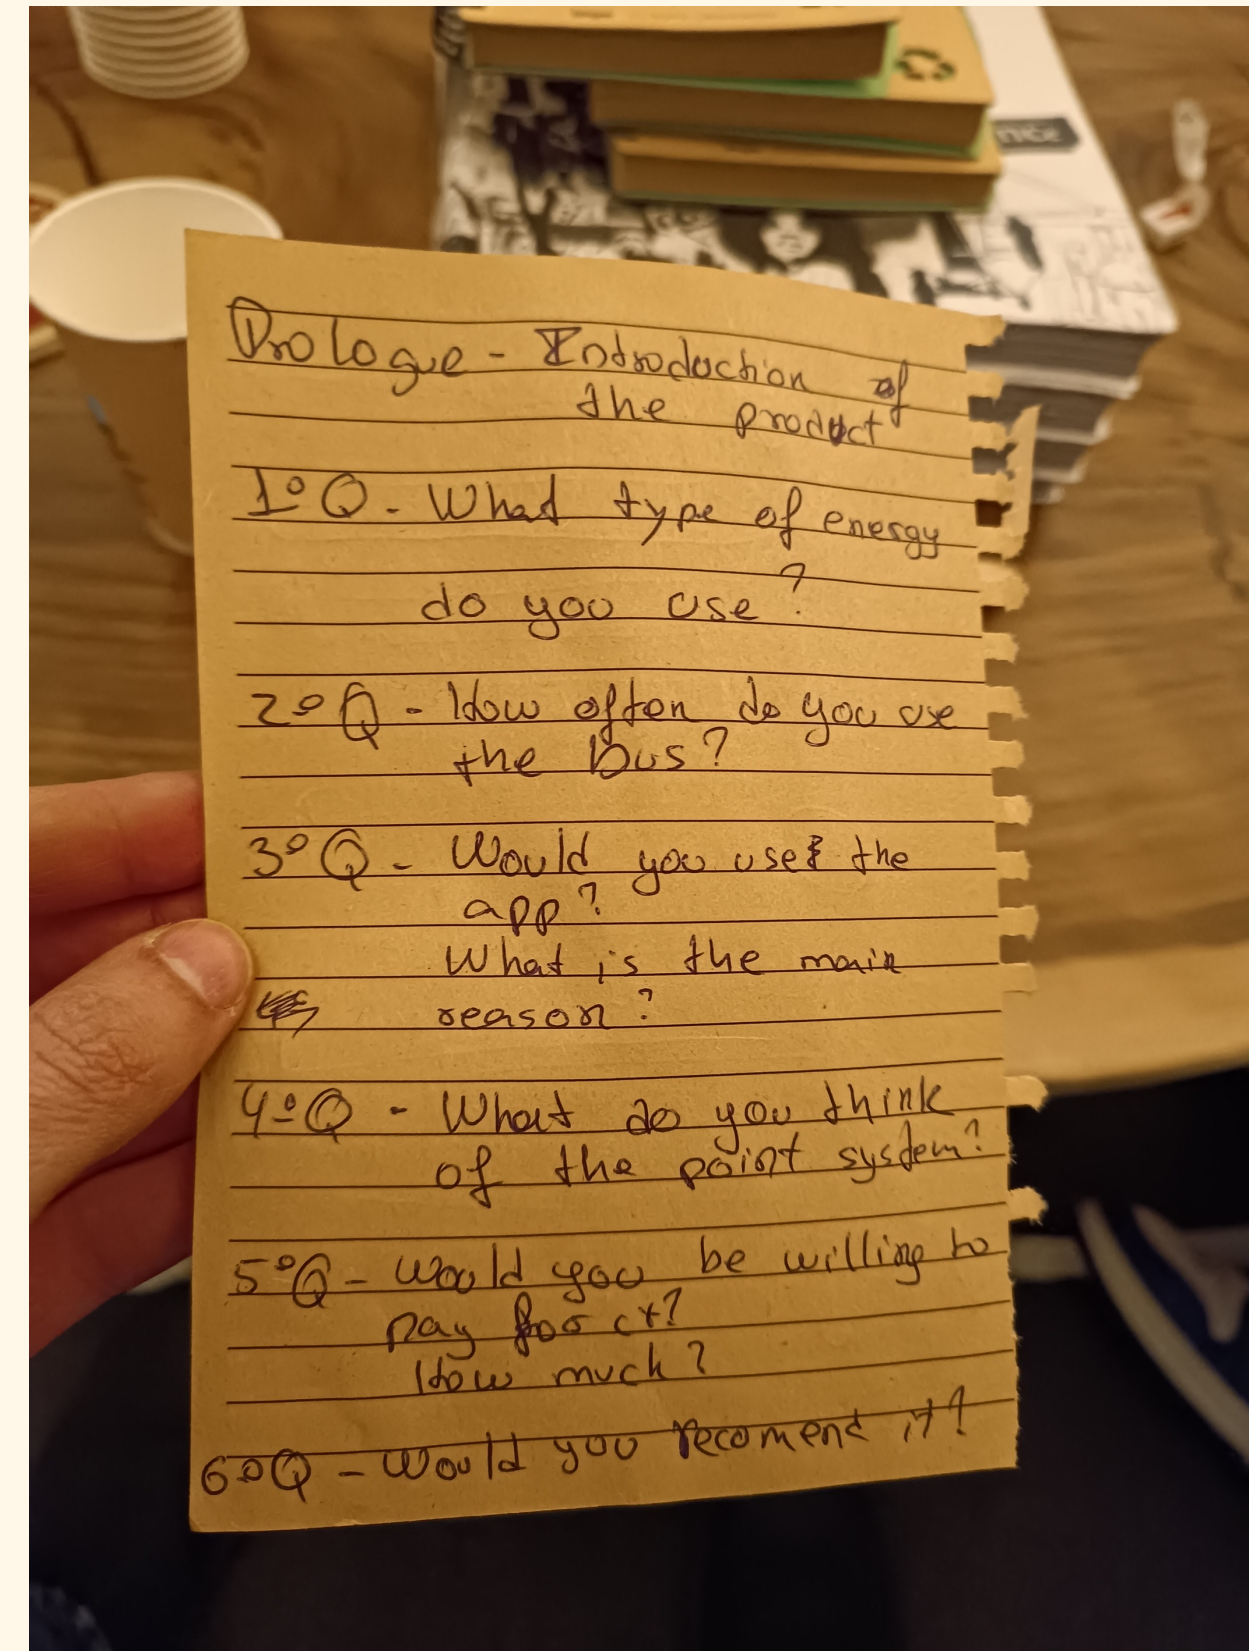 Prologue - Introduction of
the product
1º Q - What type of energy
do you use?
2º Q - How often do you use
the bus?
3º Q - Would you use the
app?
What is the main
reason?
4º Q - What do you think
of the point system?
5º Q - Would you be willing to
pay for it?
How much?
6º Q - Would you recomend it?